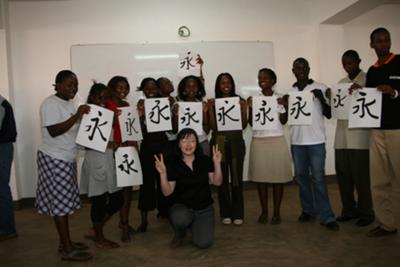 永
永
永
永
永
永
永
永
永
永
永